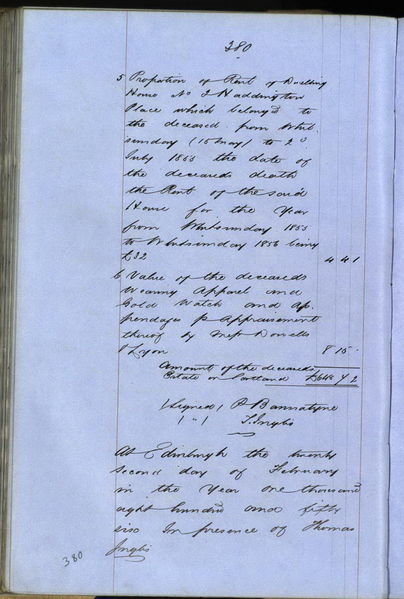 380
5 Proportion of Rent of Dwelling
House No 2 Haddington
Place which belong'd to
the deceased from Whit-
sunday (15 May) to 2d
July 1855 the date of
the deceaseds death
the Rent of the said
House for the Year
from Whitsunday 1855
to Whitsunday 1856 being
£32 4 4 1
6 Value of the deceaseds
Wearing Apparel and
Gold Watch and Ap-
pendages p Appraisement
thereof by Messrs Dowells
& Lyon 8 15 "
Amount of the deceaseds
Estate in Scotland
(Signed) P Bannatyne
( " ) T. Inglis
At Edinburgh the twenty
second day of February
in the Year one thousand
eight hundred and fifty
six In presence of Thomas
Inglis
380